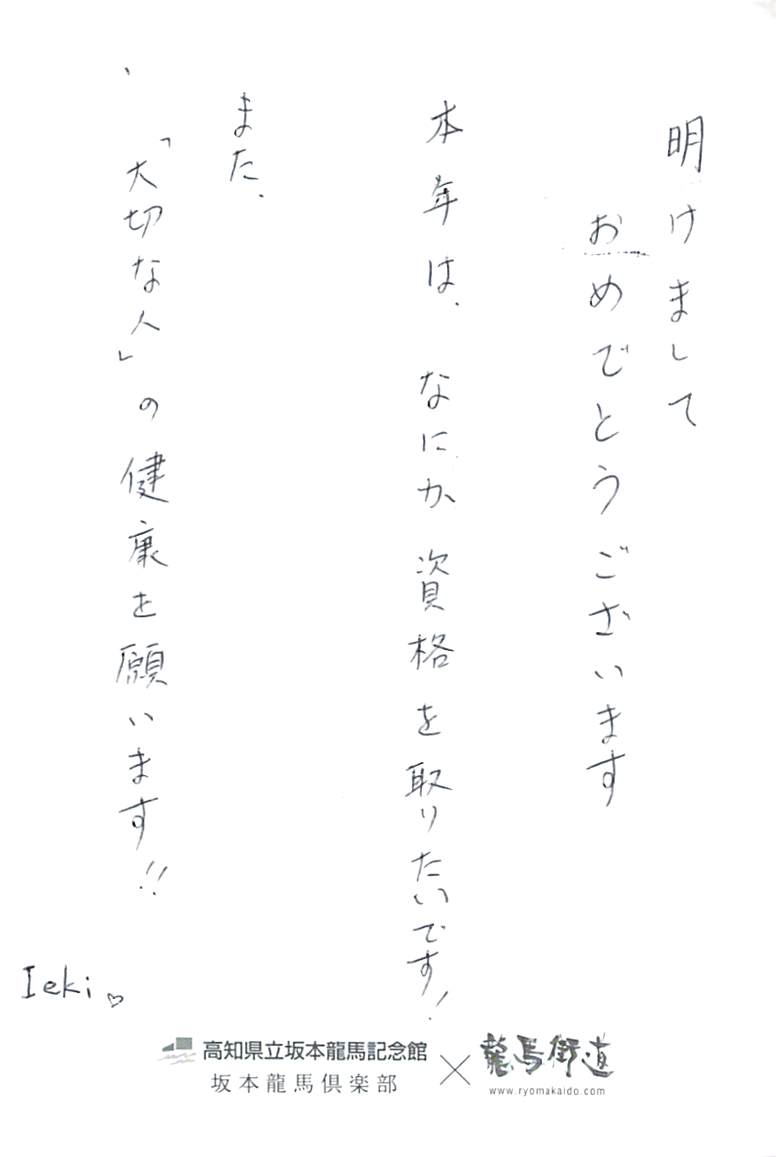 明けまして
おめでとうございます
本年は、なにか資格を取りたいです!
また、
「大切な人」の健康を願います!!
Ieki♡
高知県立坂本龍馬記念館
坂本龍馬倶楽部
×
龍馬街道
www.ryomakaido.com